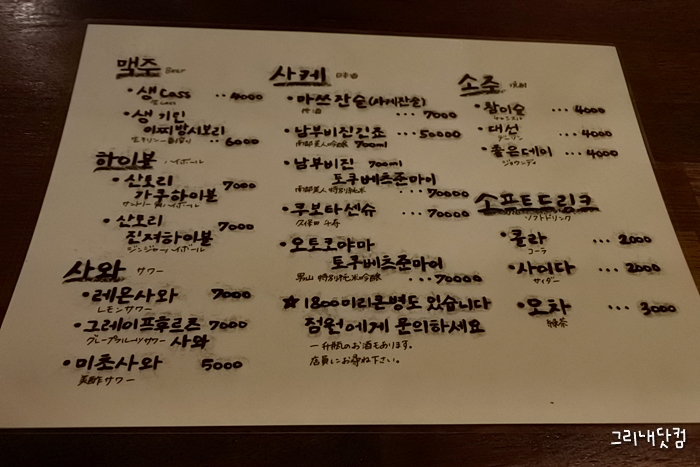 맥주 Beer
· 생 Cass ·· 4000
生 Cass
· 생 기린
이찌방시보리
生キリン一番搾り ·· 6000
하이볼 ハイボール
· 산토리 7000
가쿠하이볼
サントリー角ハイボール
· 산토리 7000
진저하이볼
ジンジャーハイボール
사와 サワー
· 레몬사와 7000
レモンサワー
· 그레이프후르츠 7000
グレープフルーツサワー 사와
· 미초사와 5000
美酢サワー
사케 日本酒
· 마쓰잔술(사케잔술)
··· 7000
· 남부비진긴죠 ··· 50000
南部美人吟醸 700ml
· 남부비진 700ml
토쿠베츠준마이
南部美人 特別純米 ··· 70000
· 쿠보타센슈 ··· 70000
久保田 千寿
· 오토코야마
토쿠베츠준마이
男山 特別純米 ··· 70000
☆ 1800미리큰병도 있습니다
점원에게 문의하세요
一升瓶のお酒もあります。
店員にお尋ね下さい。
소주 焼酎
· 참이슬 ··· 4000
チャミスル
· 대선 ··· 4000
デーソン
· 좋은데이 ··· 4000
ジョウンデイ
소프트드링크
ソフトドリンク
· 콜라 ··· 2000
コーラ
· 사이다 ··· 2000
サイダー
· 오차 ··· 3000
緑茶
그리내닷컴